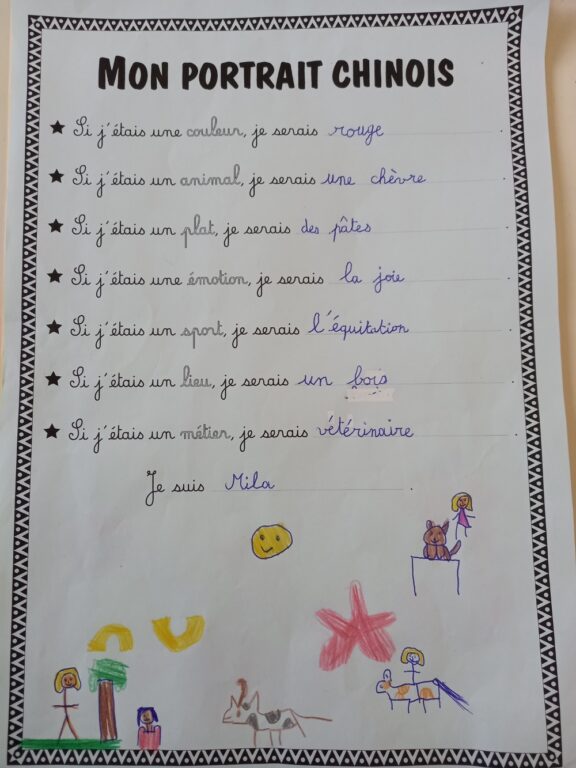 MON PORTRAIT CHINOIS
★ Si j'étais une couleur, je serais rouge.
★ Si j'étais un animal, je serais une chèvre.
★ Si j'étais un plat, je serais des pâtes.
★ Si j'étais une émotion, je serais la joie.
★ Si j'étais un sport, je serais l'équitation.
★ Si j'étais un lieu, je serais un bois.
★ Si j'étais un métier, je serais vétérinaire.
Je suis Mila.